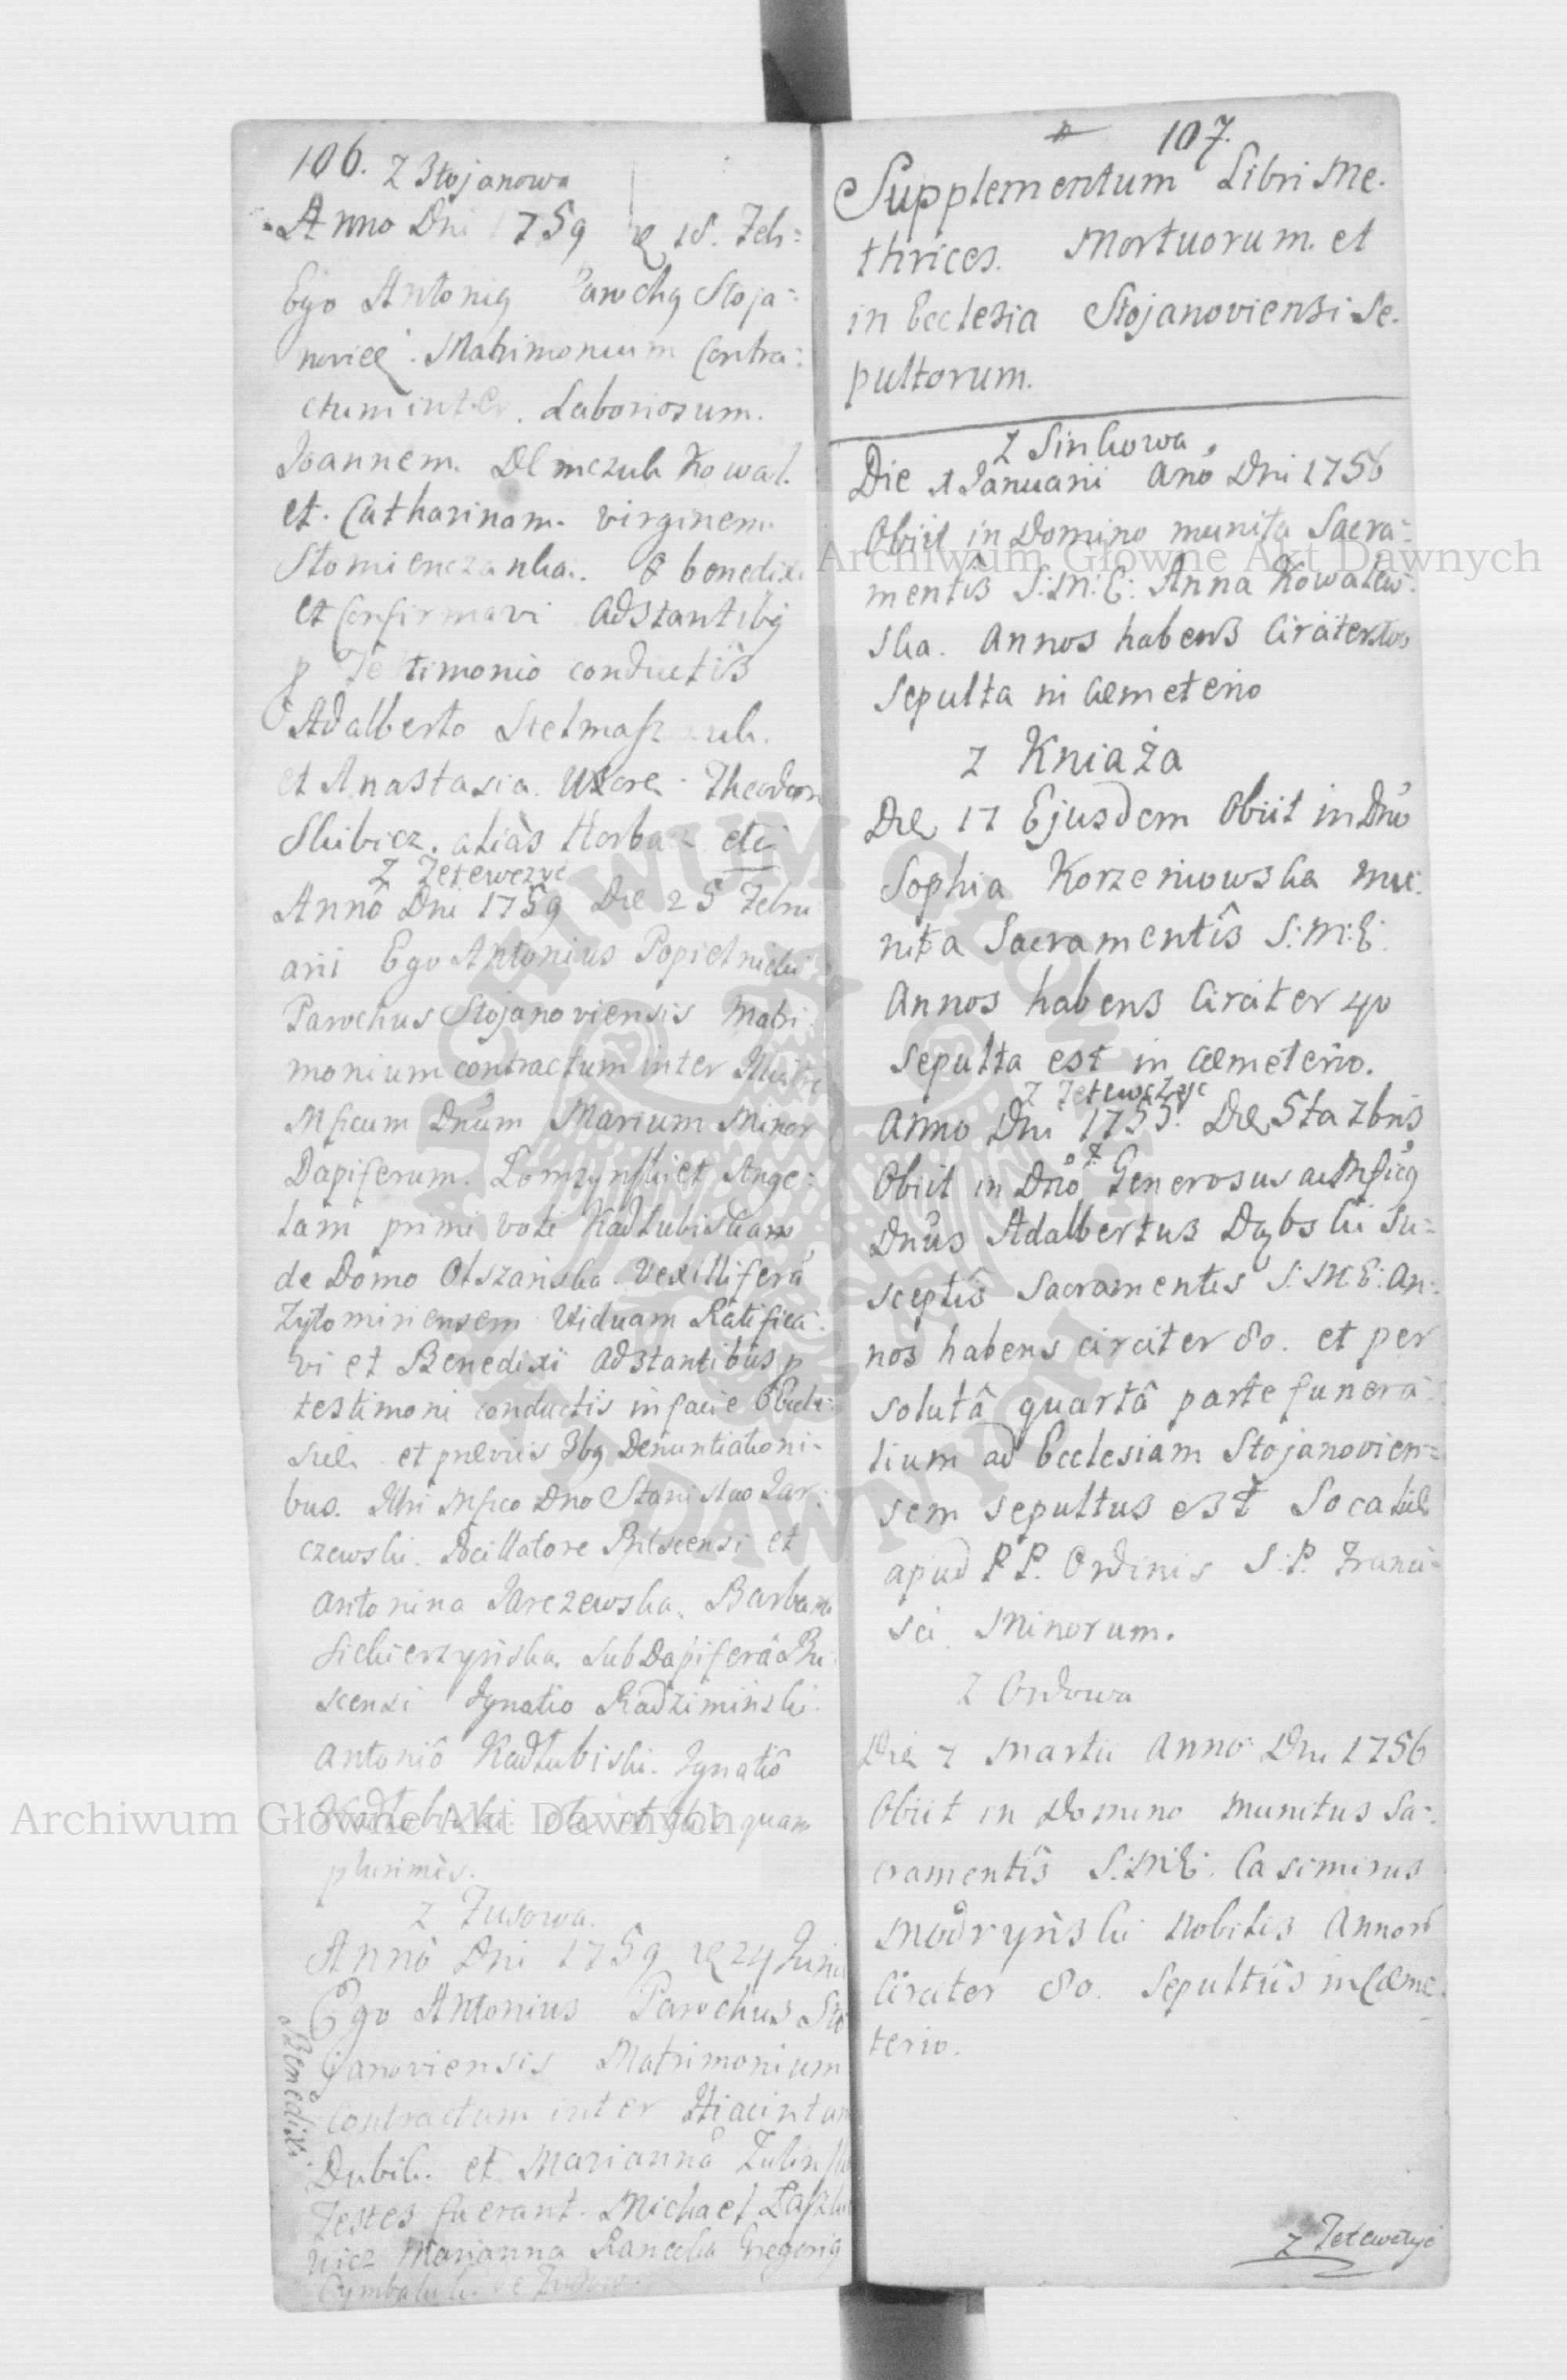 106.
Z Stojanowa
Anno Dni 1759 18. Feb:
Ego Antoni9 Paroch9 Stoja:
Matrimonium Contra:
ctum inter. Laboriosum.
Joannem. Kowal.
et. Catharinam. virginem.
Stomienczanka. & benedixi
et Confirmavi Adstantib9
p Testimonio conductis
Adalberto
et Anastasia. Uxore. Theodori
alias Horbacz etc
Z Tetewczyc
Annô Dni 1759 Die 25 Febru
arii Ego Antonius Popielnicki
Parochus Stojanoviensis Matri
monium contractum inter Illustrē
Mficum Dnum Marcum Minor
Dapiferum. et Ange:
lam primi voti Kadłubiskam
de Domo Olszańska Vexilliferā
Zytomiriensem Viduam Ratifica:
vi et Benedixi adstantibus p
testimoni conductis in facie Eccle:
siæ et præviis 3b9 Denuntiationi-
bus. Illri Mfico Dno Stanislao Jar:
czewski. et
Antonina Jarczewska. Barbara
SubDapiferâ
Ignatio Radzimiński.
Antoniô Kadłubiski. Ignatiô
Kadłubiski etc et aliis quam
plurimis.
Z Tusowa.
Annô Dni 1759 24 Junii
Ego Antonius Parochus Sto
janoviensis Matrimonium
Contractum inter Hiacintum
Dubik. et Mariannā
Testes fuerant. Michael
Marianna Gregori9
Benedixi
107.
Supplementum Libri Me.
thrices. Mortuorum. et
in Ecclesia Stojanoviensi Se.
pultorum.
Z Sinkowa
Die 1 Januarii Anô Dni 1756
Obiit in Domino munita Sacra:
mentîs S:M:E: Anna Kowalew:
ska. Annos habens Circiter
Sepulta in Cæmeterio
Z Kniaża
Die 17 Ejusdem Obiit in Dnô
Sophia Korzeniowska mu:
nita Sacramentîs S:M:E:
Annos habens Circiter 40
Sepulta est in Cæmeterio.
Z Tetewczyc
Anno Dni 1755. Die 5ta 7bris
Obiit in Dnô Generosus ac Mfic9
Dnus Adalbertus Dąbski Su:
sceptîs Sacramentis S:M:E: An:
nos habens circiter 80. et per
solutâ quartâ parte funera:
lium ad Ecclesiam Stojanovien=
sem sepultus est Socaliæ
apud P P. Ordinis S:P. Franci:
sci Minorum.
Z Ordowa
Die 7 Martii Anno Dni 1756
Obiit in Domino Munitus Sa:
cramentîs S:M:E: Casimirus
Modryński Nobilis Annorū
Circiter 80. Sepultus in Cæme
terio.
Z Tetewczyc
Archiwum Główne Akt Dawnych
Archiwum Główne Akt Dawnych
ARCHIWUM GŁÓWNE AKT DAWNYCH